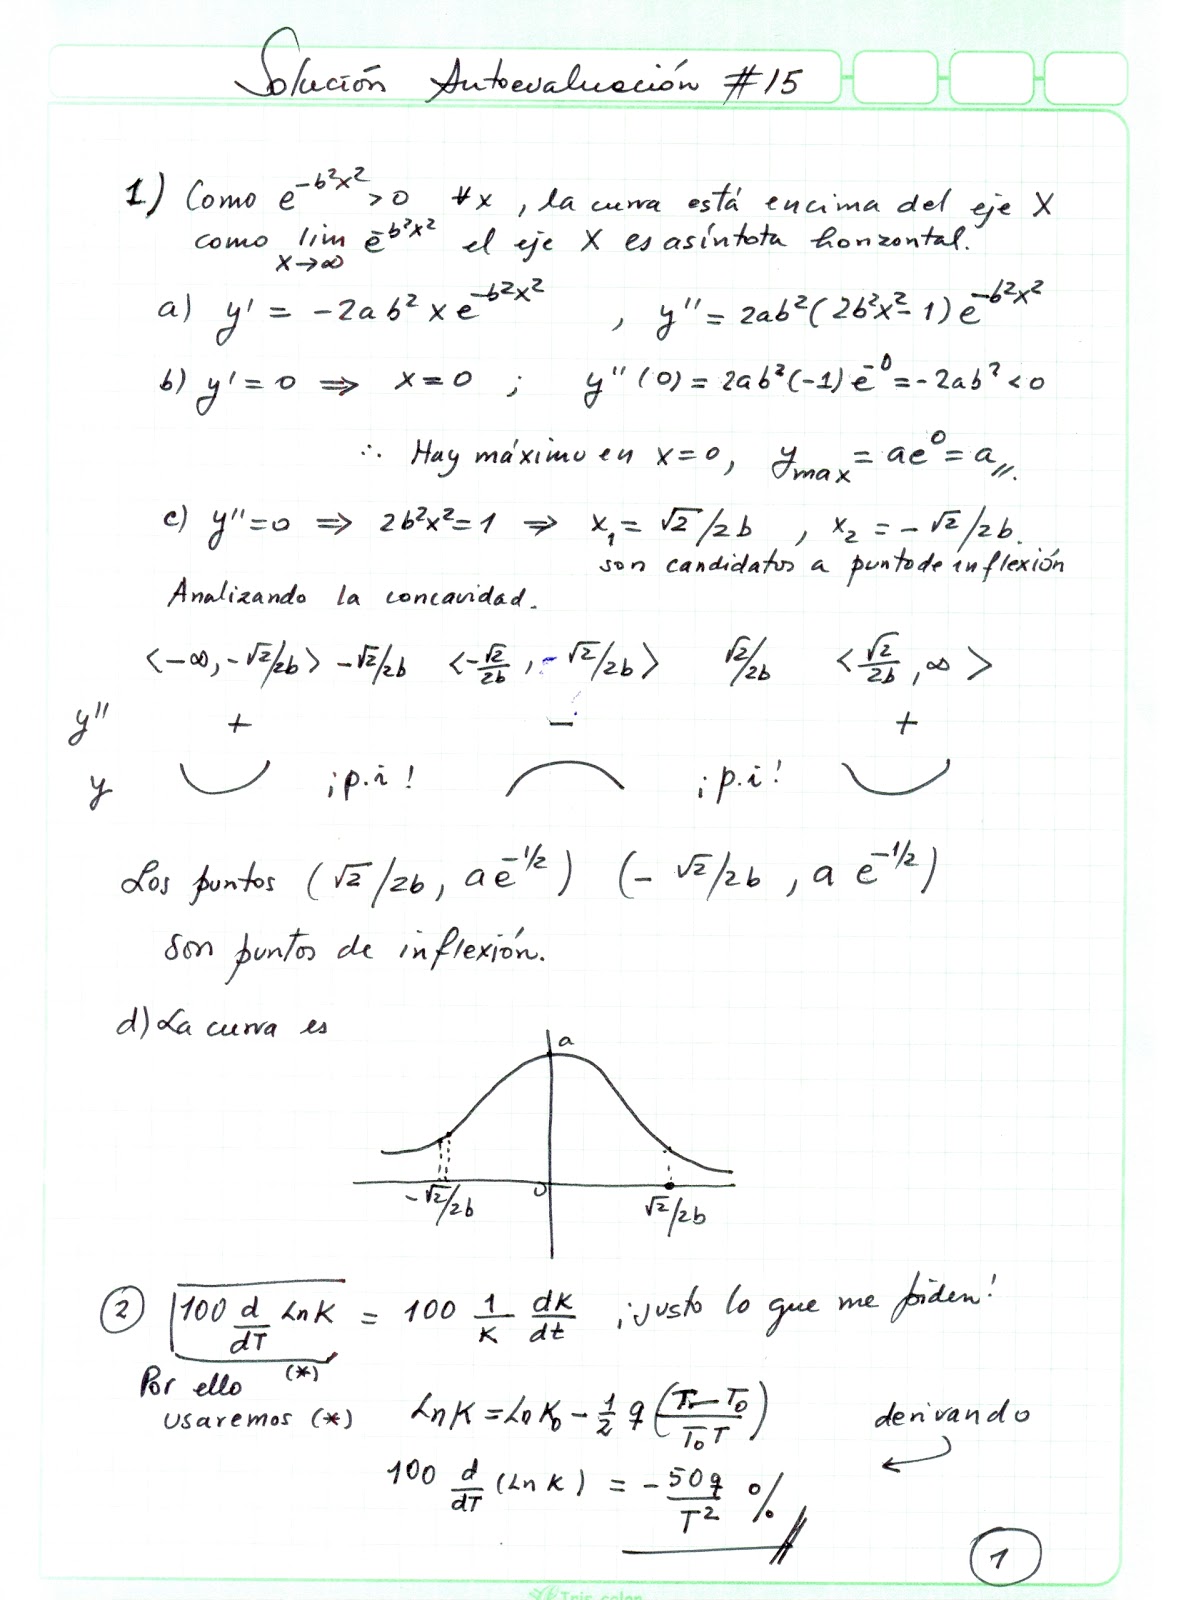 Solución Autoevaluación #15
1.) Como e^{-b²x²} > 0 ∀x, la curva está encima del eje X
como lim_{x→∞} e^{-b²x²} el eje X es asíntota horizontal.
a) y' = -2ab² x e^{-b²x²} , y'' = 2ab²(2b²x²-1) e^{-b²x²}
b) y' = 0 ⇒ x = 0 ; y''(0) = 2ab²(-1) e^{-0} = -2ab² < 0
∴ Hay máximo en x=0, y_{max} = ae⁰ = a //.
c) y''=0 ⇒ 2b²x²=1 ⇒ x₁ = √2/2b , x₂ = -√2/2b.
son candidatos a punto de inflexión
Analizando la concavidad.
<-∞, -√2/2b> -√2/2b <-√2/2b, -√2/2b> √2/2b <√2/2b, ∞>
y'' + - +
y ¡p.i! ¡p.i!
Los puntos (√2/2b, ae^{-1/2}) (-√2/2b, a e^{-1/2})
son puntos de inflexión.
d) La curva es
a
-√2/2b 0 √2/2b
② 100 d/dT LnK = 100 1/K dK/dt ¡justo lo que me piden!
(*)
Por ello
usaremos (*) LnK = LnK₀ - 1/2 q (T-T₀ / T₀T) derivando
100 d/dT (LnK) = -50q/T² %
1